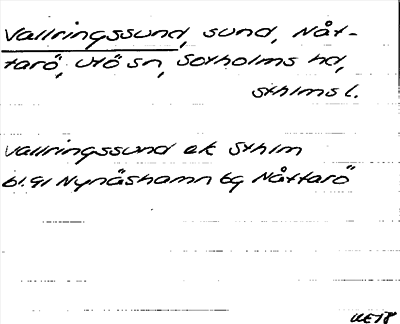 Vallringssund, sund, Nåt-
tarö, Utö sn, Sotholms hd,
Sthlms l.
Vallringssund ek Sthlm
bl. 91 Nynäshamn 6g Nåttarö
UE78